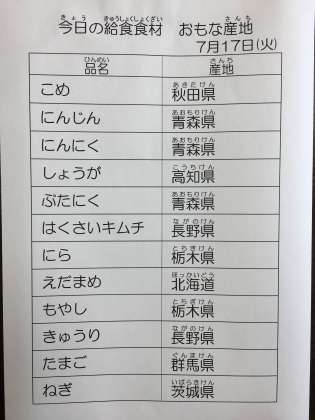 今日の給食食材　おもな産地
7月17日(火)
品名　産地
こめ　秋田県
にんじん　青森県
にんにく　青森県
しょうが　高知県
ぶたにく　青森県
はくさいキムチ　長野県
にら　栃木県
えだまめ　北海道
もやし　栃木県
きゅうり　長野県
たまご　群馬県
ねぎ　茨城県